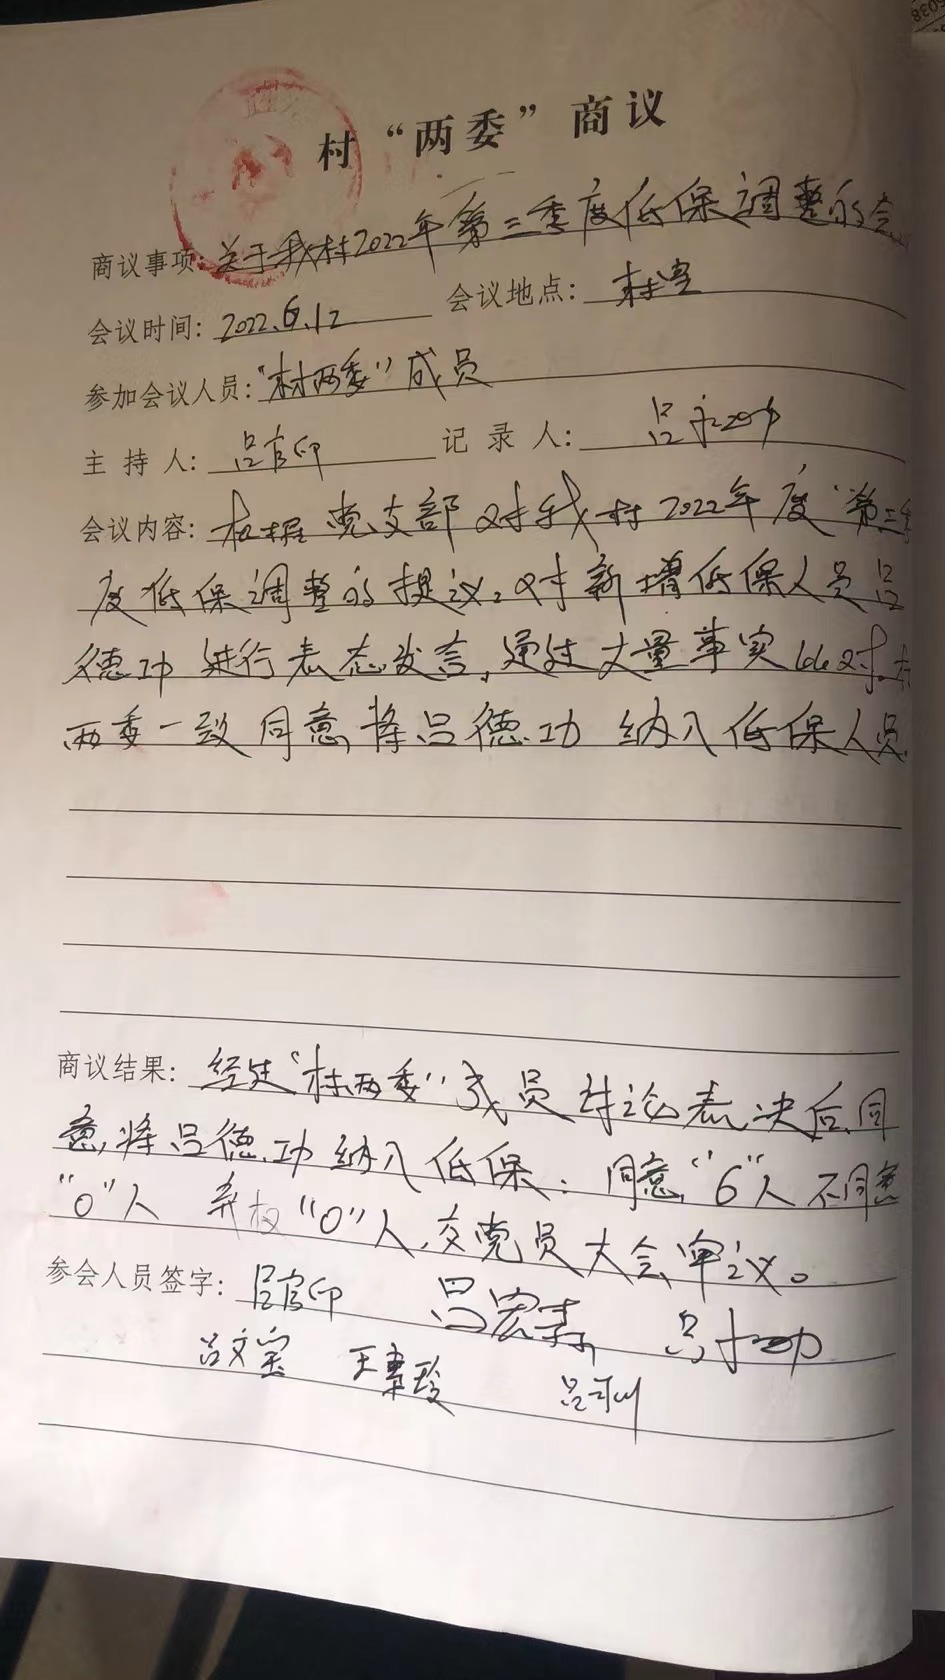 村“两委”商议
商议事项: 关于我村2022年第三季度低保调整的会
会议时间: 2022.6.12 会议地点: 村室
参加会议人员: “村两委”成员
主持人: 吕官印 记录人: 吕
会议内容: 根据党支部对我村2022年度“第三季
度低保调整的提议,对新增低保人员吕
德功进行表态发言,通过大量事实比对.村
两委一致同意,将吕德功 纳入低保人员.
商议结果: 经过“村两委”成员讨论表决后,同
意,将吕德功纳入低保:同意“6”人 不同意
“0”人 弃权“0”人,交党员大会审议。
参会人员签字: 吕官印 吕宏 吕
吕文宝 王 玲 吕